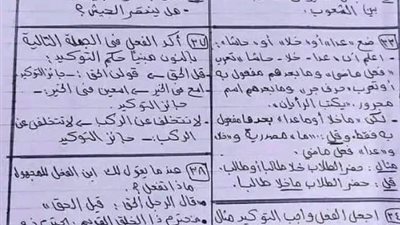 بين الشعوب.
٢٣ ضع «عدا» أو «خلا» أو «حاشا»:
اعلم أن «عدا - خلا - حاشا» تعرب
«فعل ماضي» وما بعدهم مفعول به
أو تعرب «حرف جر» وما بعدهم اسم
مجرور. «يكتب الرأيان».
- لكن «ما خلا أو ما عدا» بعدهم مفعول
به فقط، وقل «ما» مصدرية و«خلا»
و«عدا» فعل ماضي.
مثال: حضر الطلاب خلا طالباً أو طالبٍ.
قل: حضر الطلاب ما خلا طالباً.
٢٤ اجعل الفعل واجب التوكيد مثال
- هل ينتصر الجيش؟
٣٧ أكد الفعل في الجملة التالية
بالنون مبيناً حكم التوكيد:
- قل الحق ← قولن الحق: جائز التوكيد
- اسع في الخير ← اسعين في الخير:
جائز التوكيد.
- لا تتخلف عن الركب ← لا تتخلفن عن
الركب: جائز التوكيد
٣٨ عندما يقول لك ابن الفعل للمجهول
ماذا تفعل؟
- قال الرجل الحق: قيل الحق.